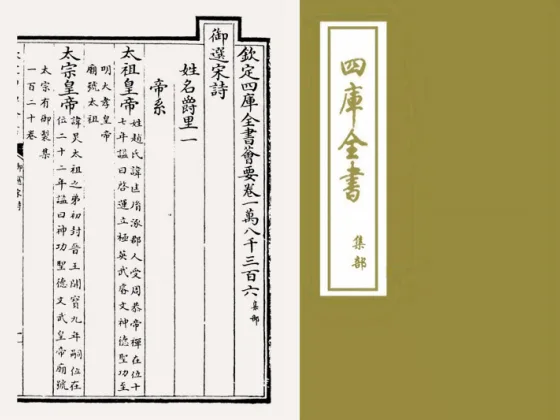 欽定四庫全書薈要卷一萬八千三百六 集部
御選宋詩
姓名爵里一
帝系
太祖皇帝 姓趙氏諱匡胤涿郡人受周恭帝禪在位十
七年諡曰啓運立極英武睿文神德聖功至
明大孝皇帝
廟號太祖
太宗皇帝 諱炅太祖之弟初封晉王開寶九年嗣位在
位二十二年諡曰神功聖德文武皇帝廟號
太宗有御製集
一百二十卷
御選宋詩
四庫全書
集部